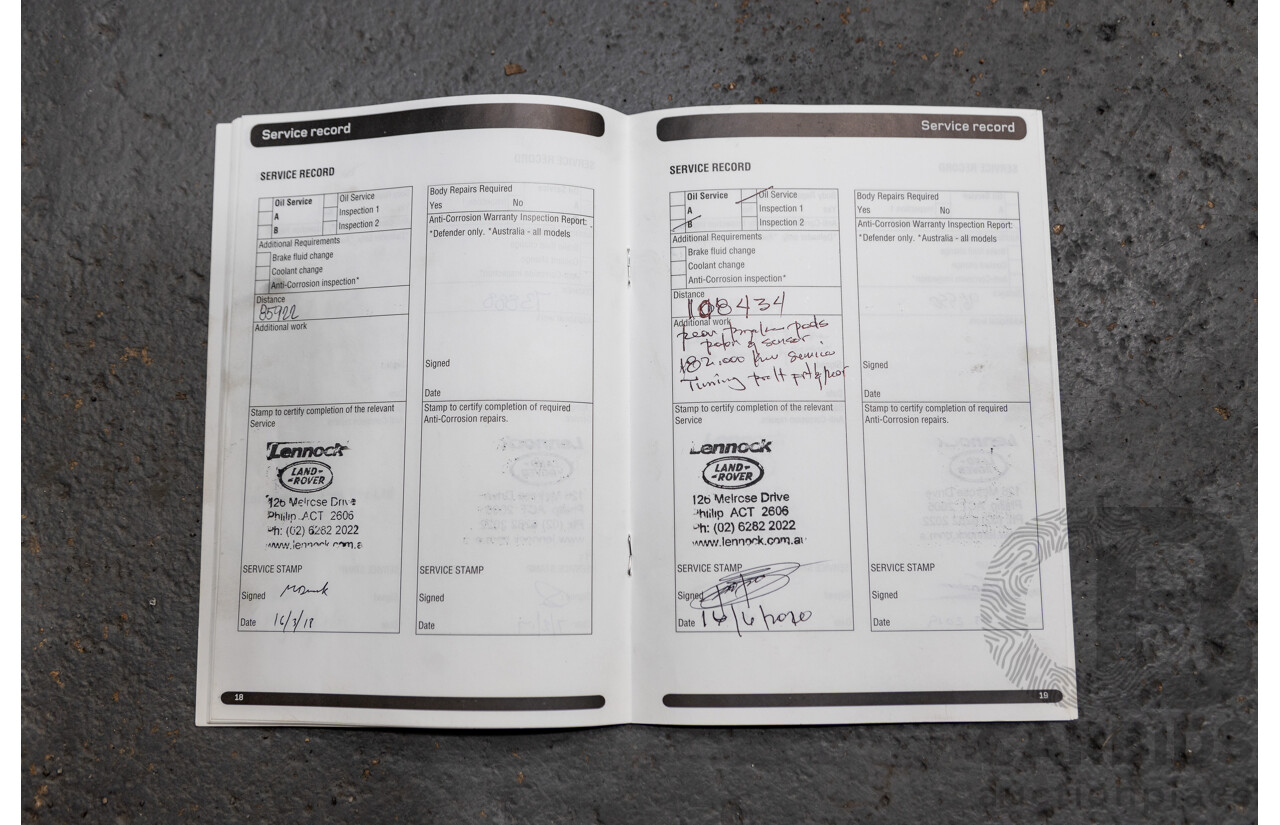 Service record
SERVICE RECORD
Oil Service
A
B
Oil Service
Inspection 1
Inspection 2
Additional Requirements
Brake fluid change
Coolant change
Anti-Corrosion inspection*
Distance
85922
Additional work
Stamp to certify completion of the relevant
Service
Lennock
LAND-
ROVER
126 Melrose Drive
Phillip ACT 2606
Ph: (02) 6282 2022
www.lennock.com.a
SERVICE STAMP
Signed
Date 16/3/18
Body Repairs Required
Yes No
Anti-Corrosion Warranty Inspection Report:
*Defender only. *Australia - all models
Signed
Date
Stamp to certify completion of required
Anti-Corrosion repairs.
SERVICE STAMP
Signed
Date
18
Service record
SERVICE RECORD
Oil Service
A
B
Oil Service
Inspection 1
Inspection 2
Additional Requirements
Brake fluid change
Coolant change
Anti-Corrosion inspection*
Distance
108434
Additional work
pads
& sensor.
182,000 km Service
Stamp to certify completion of the relevant
Service
Lennock
LAND-
ROVER
126 Melrose Drive
Phillip ACT 2606
Ph: (02) 6282 2022
www.lennock.com.au
SERVICE STAMP
Signed
Date 16/6/2020
Body Repairs Required
Yes No
Anti-Corrosion Warranty Inspection Report:
*Defender only. *Australia - all models
Signed
Date
Stamp to certify completion of required
Anti-Corrosion repairs.
SERVICE STAMP
Signed
Date
19